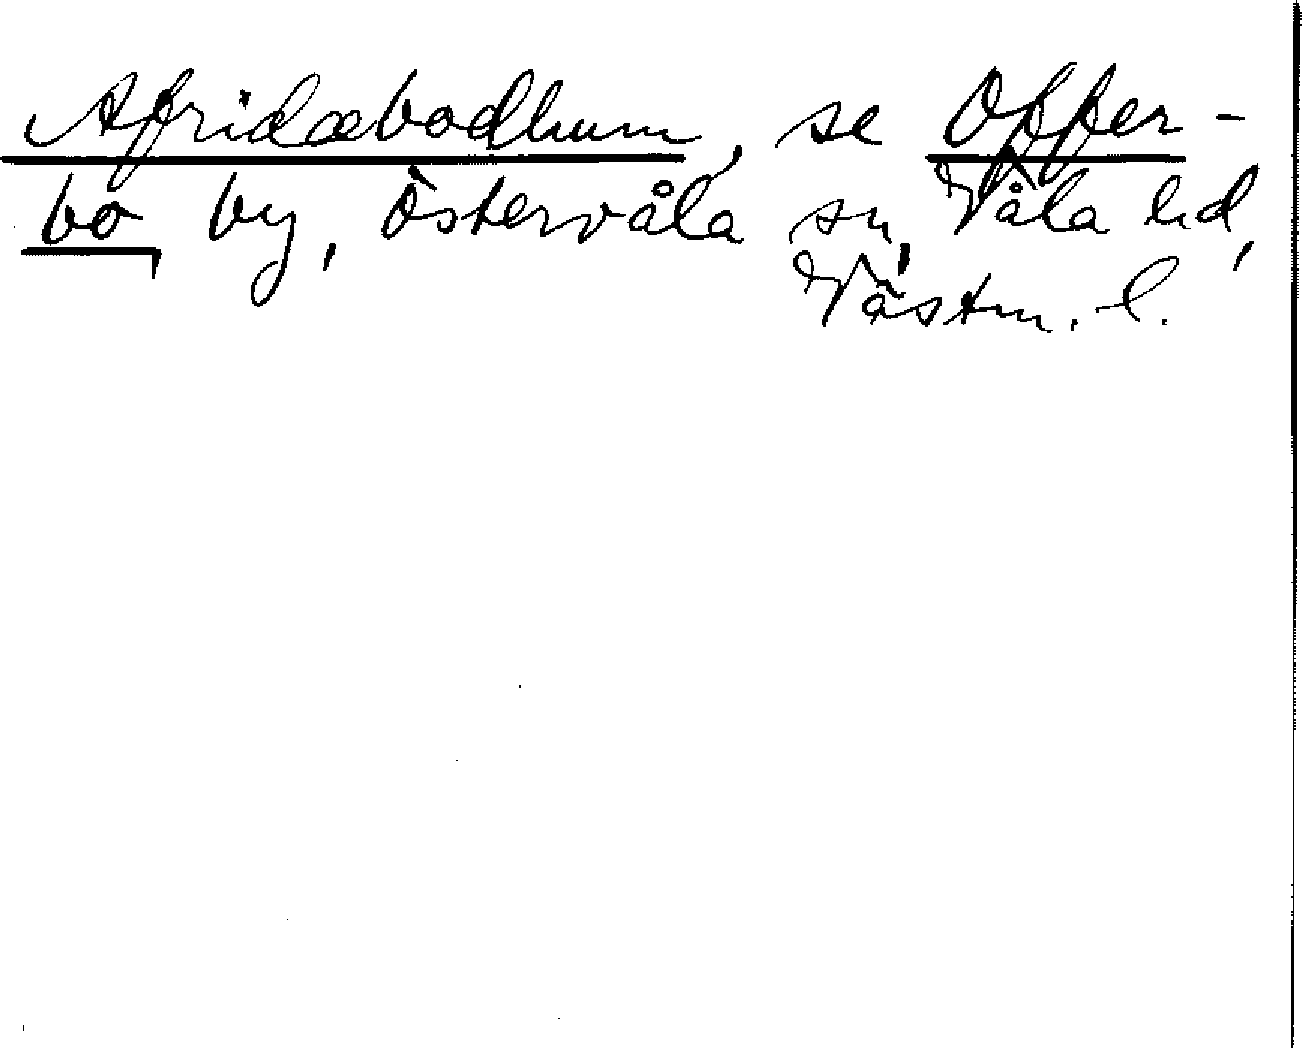 Afridæbodhum, se Offer-
bo, by, Östervåla sn, Våla hd,
Västm. l.